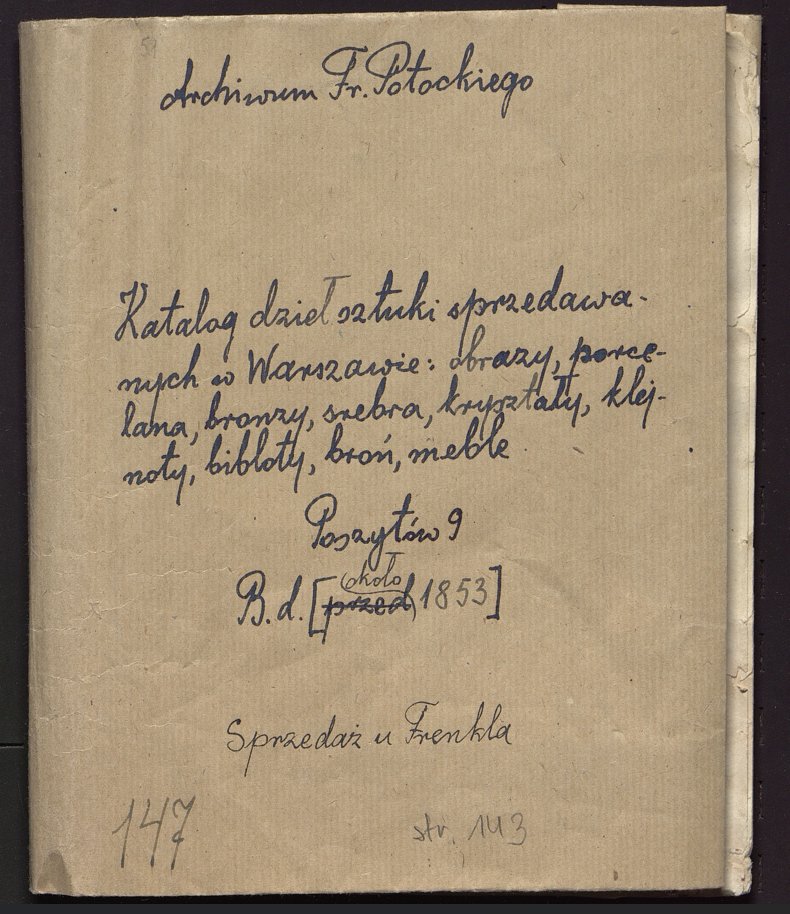 51
Archiwum Fr. Potockiego
Katalog dzieł sztuki sprzedawa-
nych w Warszawie: obrazy, porce-
lana, bronzy, srebra, kryształy, klej-
noty, bibloty, broń, meble
Poszytów 9
około
B. d. [przed 1853]
Sprzedaż u Frenkla
147
str. 143